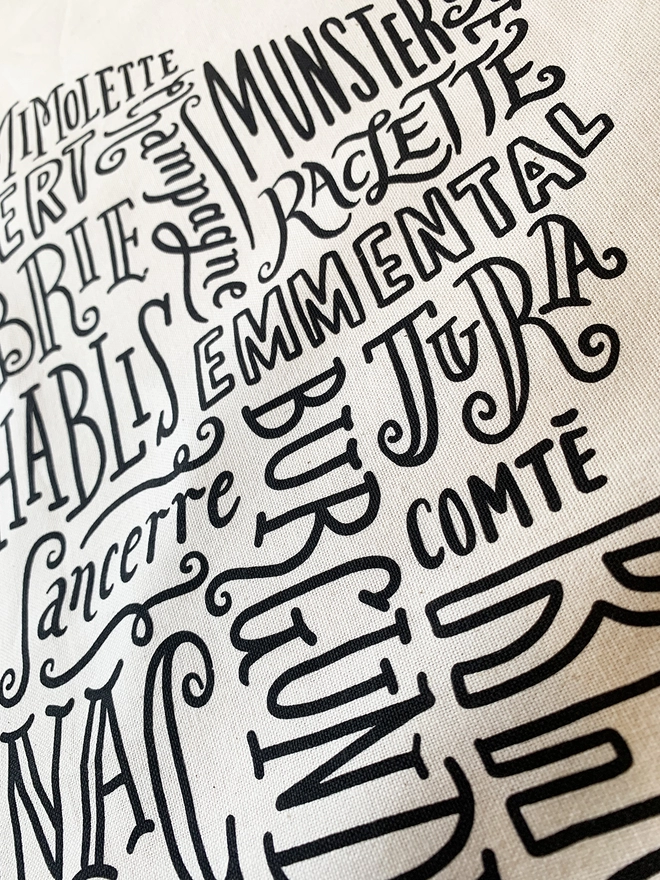 MIMOLETTE
Champagne
MUNSTER
ERT
RACLETTE
BRIE
EMMENTAL
HABLIS
JURA
Sancerre
BURGUND
COMTÉ
NAC